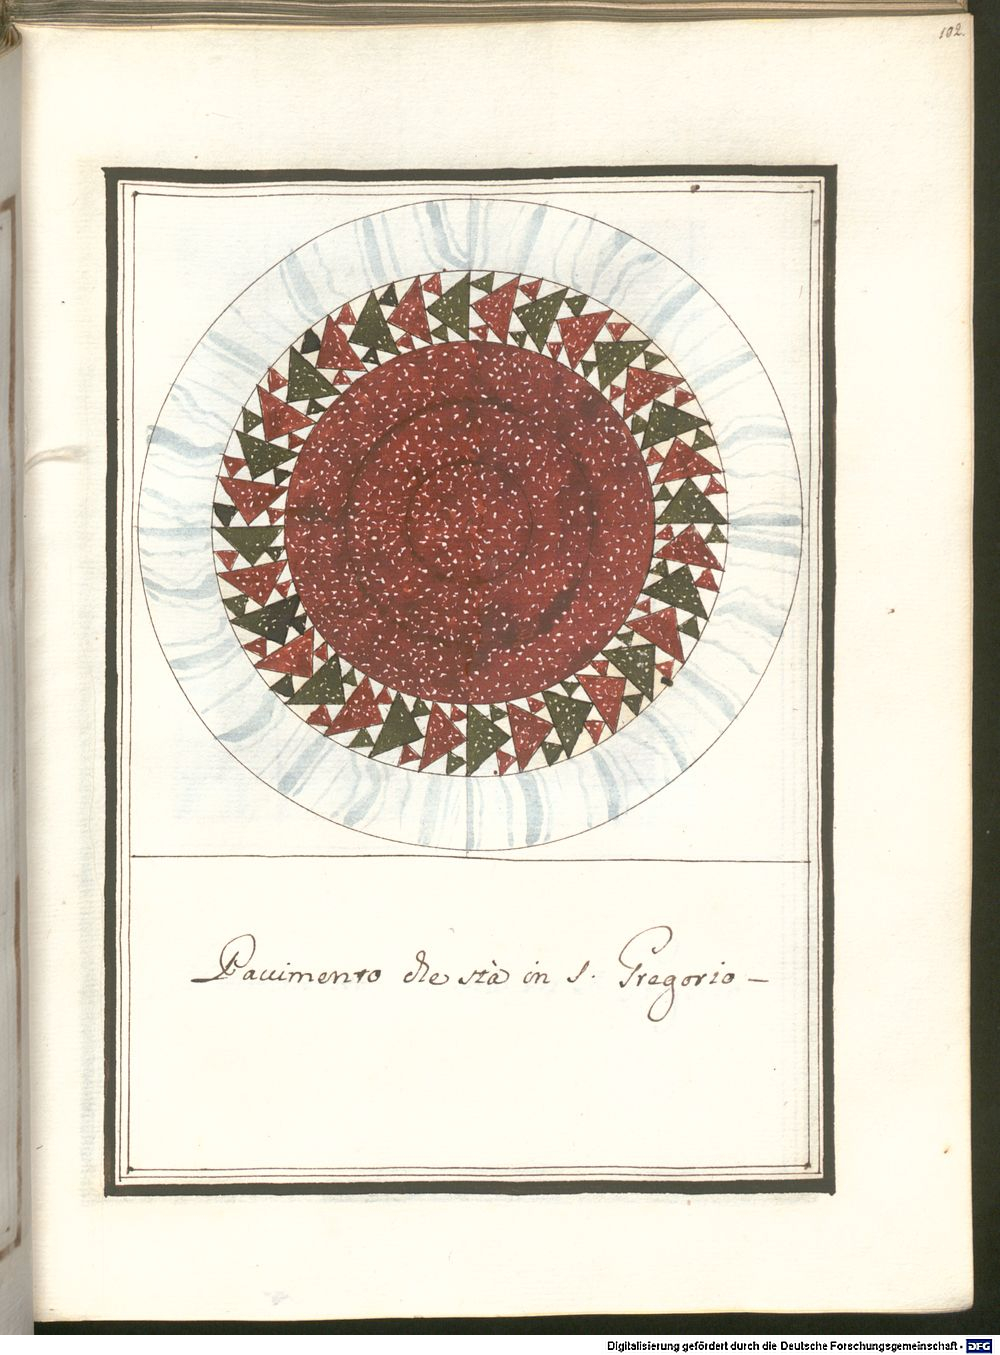 102.
Pauimento che stà in S. Gregorio –
Digitalisierung gefördert durch die Deutsche Forschungsgemeinschaft - DFG